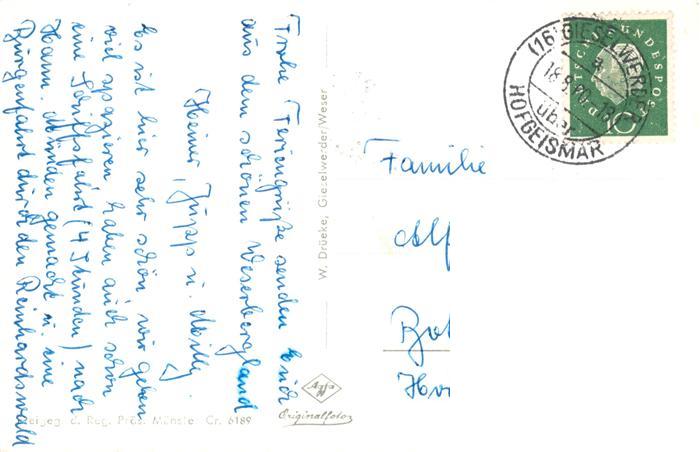 Frohe Feriengrüße senden Euch
aus dem schönen Weserbergland
Heiner, Jupp u. Milly.
Es ist hier sehr schön wir gehen
viel spazieren, haben auch schon
eine Schiffsfahrt (4 Stunden) nach
Hann. Münden gemacht u. eine
Burgenfahrt durch den Reinhardswald
W. Drüeke, Gieselwerder/Weser
Agfa
Originalfoto
Freigeg. d. Reg. Präs. Münster Cr. 6189
(16) GIESELWERDER
18.8.60.-18
über
HOFGEISMAR
DEUTSCHE BUNDESPOST
10
Familie
Alf